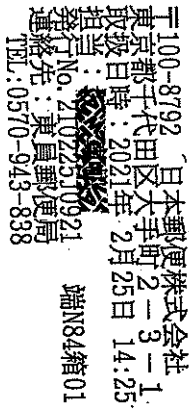 〒100-8792 日本郵便株式会社
東京都千代田区大手町2-3-1
取扱日時：2021年 2月25日 14:25
担当：
発行No. 210225J0921 端N84箱01
連絡先：東員郵便局
TEL：0570-943-838